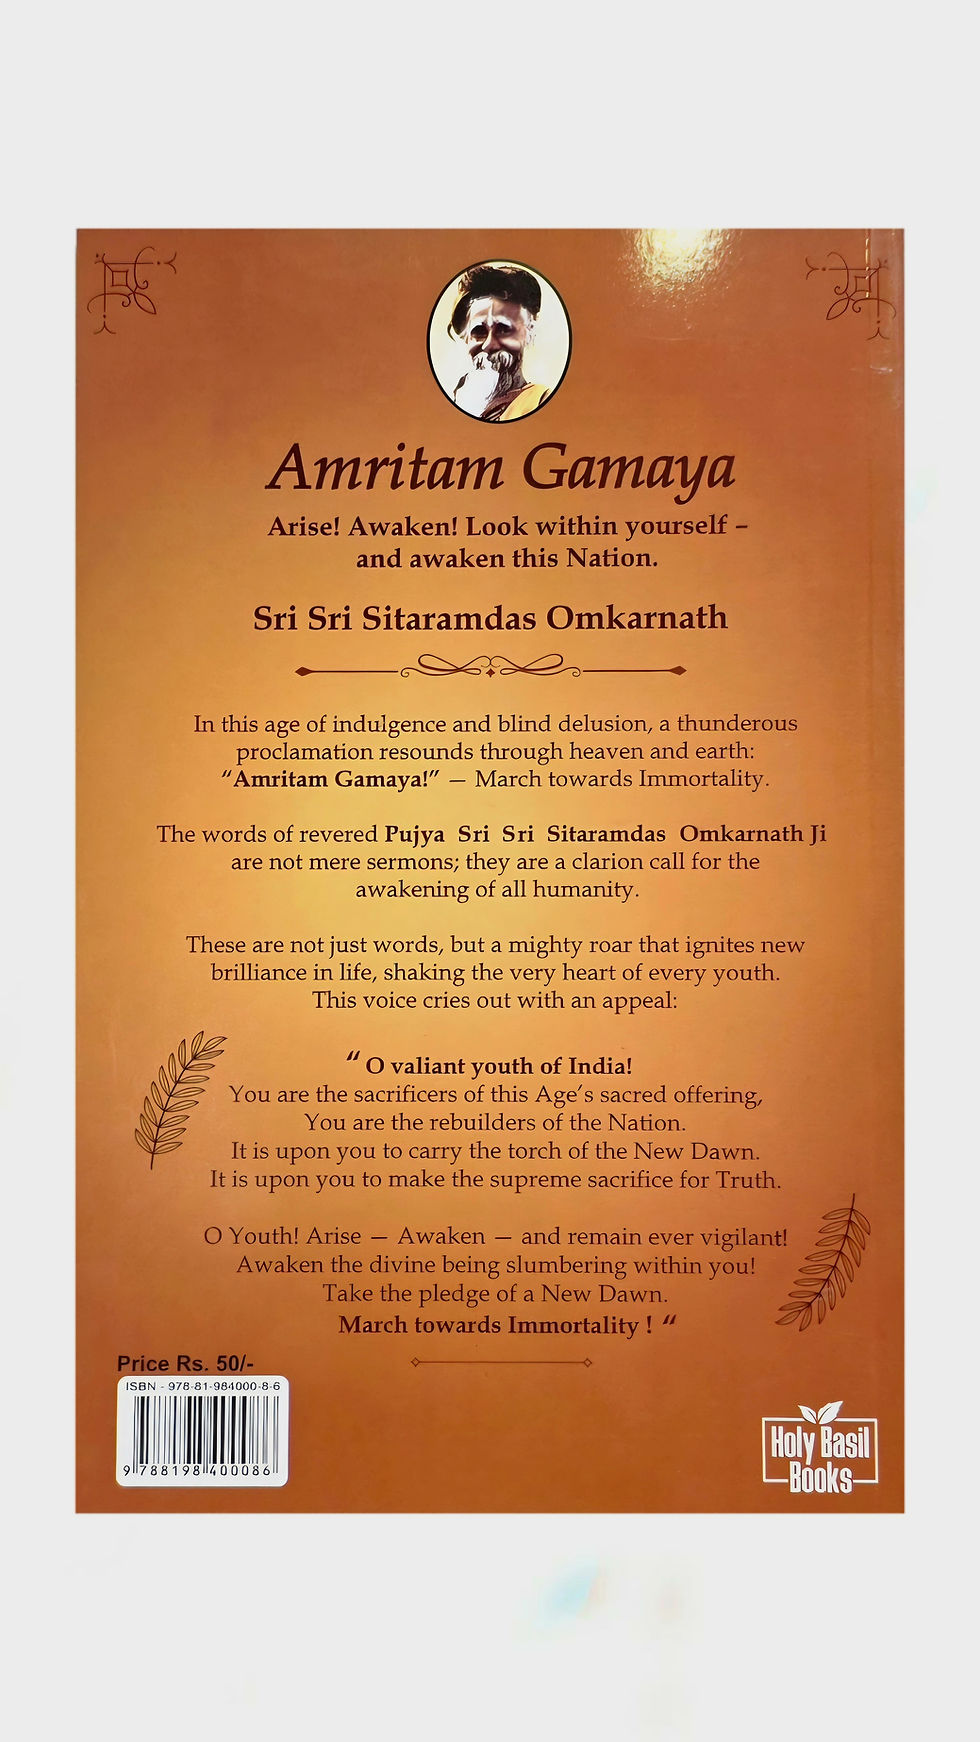 Amritam Gamaya
Arise! Awaken! Look within yourself –
and awaken this Nation.
Sri Sri Sitaramdas Omkarnath
In this age of indulgence and blind delusion, a thunderous
proclamation resounds through heaven and earth:
“Amritam Gamaya!” — March towards Immortality.
The words of revered Pujya Sri Sri Sitaramdas Omkarnath Ji
are not mere sermons; they are a clarion call for the
awakening of all humanity.
These are not just words, but a mighty roar that ignites new
brilliance in life, shaking the very heart of every youth.
This voice cries out with an appeal:
“ O valiant youth of India!
You are the sacrificers of this Age’s sacred offering,
You are the rebuilders of the Nation.
It is upon you to carry the torch of the New Dawn.
It is upon you to make the supreme sacrifice for Truth.
O Youth! Arise — Awaken — and remain ever vigilant!
Awaken the divine being slumbering within you!
Take the pledge of a New Dawn.
March towards Immortality ! “
Price Rs. 50/-
ISBN - 978-81-984000-8-6
9 788198 400086
Holy Basil
Books